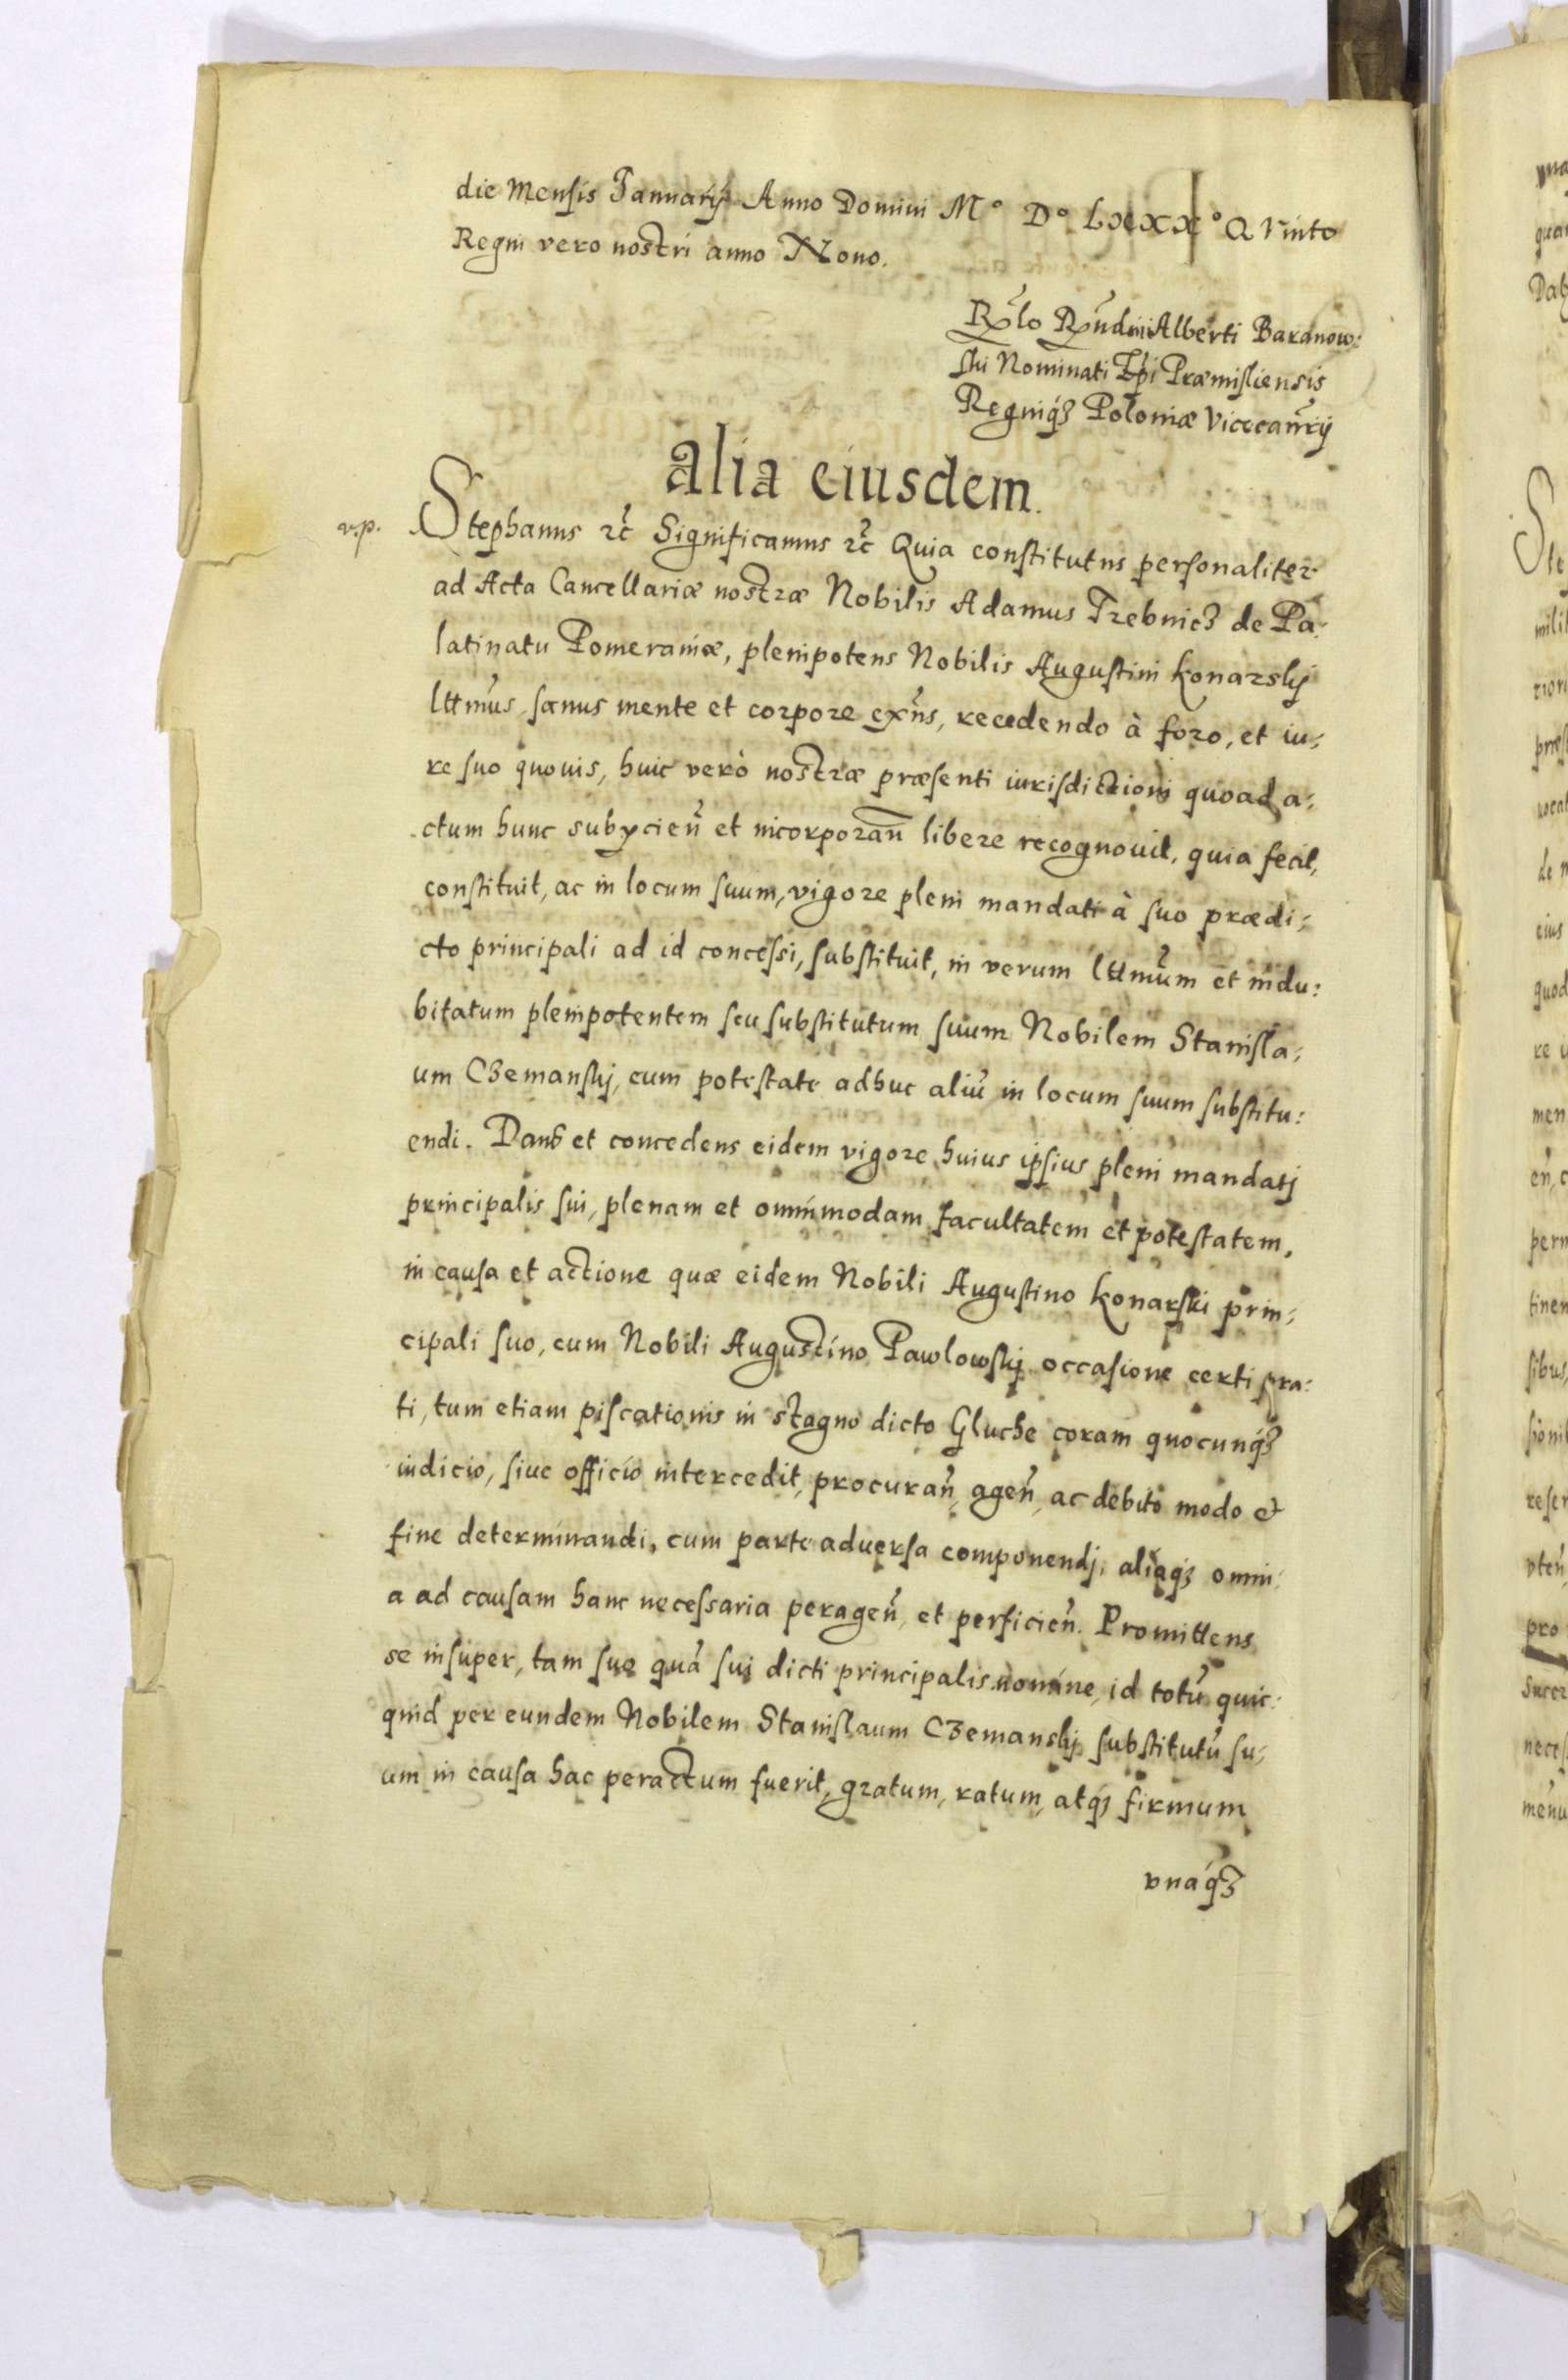 die Mensis Januarÿ Anno Domini M° D° LXXXX° QVinto
Regni vero nostri anno Nono.
Rło Rñdmi Alberti Baranow:
ski Nominati Ep̃i Præmisliensis
Regniqʒ Poloniæ Vicecanr̃ij
alia eiusdem.
v.p.
Stephanus ꝛc̃ Significamus ꝛc̃ Quia constitutus personaliter
ad Acta Cancellariæ nostræ Nobilis Adamus Trebnicʒ de Pa:
latinatu Pomeraniæ, plenipotens Nobilis Augustini Konarskj
lttm̃us, sanus mente et corpore exñs, recedendo à foro, et iu:
re suo quouis, huic verò nostræ præsenti iurisdictioni quoad a:
ctum hunc subycieñ et incorporañ libere recognouit, quia fecit,
constituit, ac in locum suum, vigore pleni mandati à suo prædi:
cto principali ad id concessi, substituit, in verum lttm̃um et indu:
bitatum plenipotentem seu substitutum suum Nobilem Stanisla:
um Cʒemanskj, cum potestate adhuc aliũ in locum suum substitu:
endi. Dans et concedens eidem vigore huius ipsius pleni mandatj
principalis sui, plenam et omnimodam facultatem et potestatem,
in causa et actione quæ eidem Nobili Augustino Konarski prin:
cipali suo, cum Nobili Augustino Pawlowskj occasione certi pra:
ti, tum etiam piscationis in stagno dicto Gluche coram quocunqʒ
iudicio, siue officio intercedit, procurañ, ageñ, ac debito modo et
fine determinandi, cum parte aduersa componendj, aliaqʒ omni:
a ad causam hanc necessaria perageñ, et perficieñ. Promittens
se insuper, tam suo quã sui dicti principalis nomine, id totũ quic:
quid per eundem Nobilem Stanislaum Cʒemanskj substitutũ su:
um in causa hac peractum fuerit, gratum, ratum, atqʒ firmum
vnáqʒ